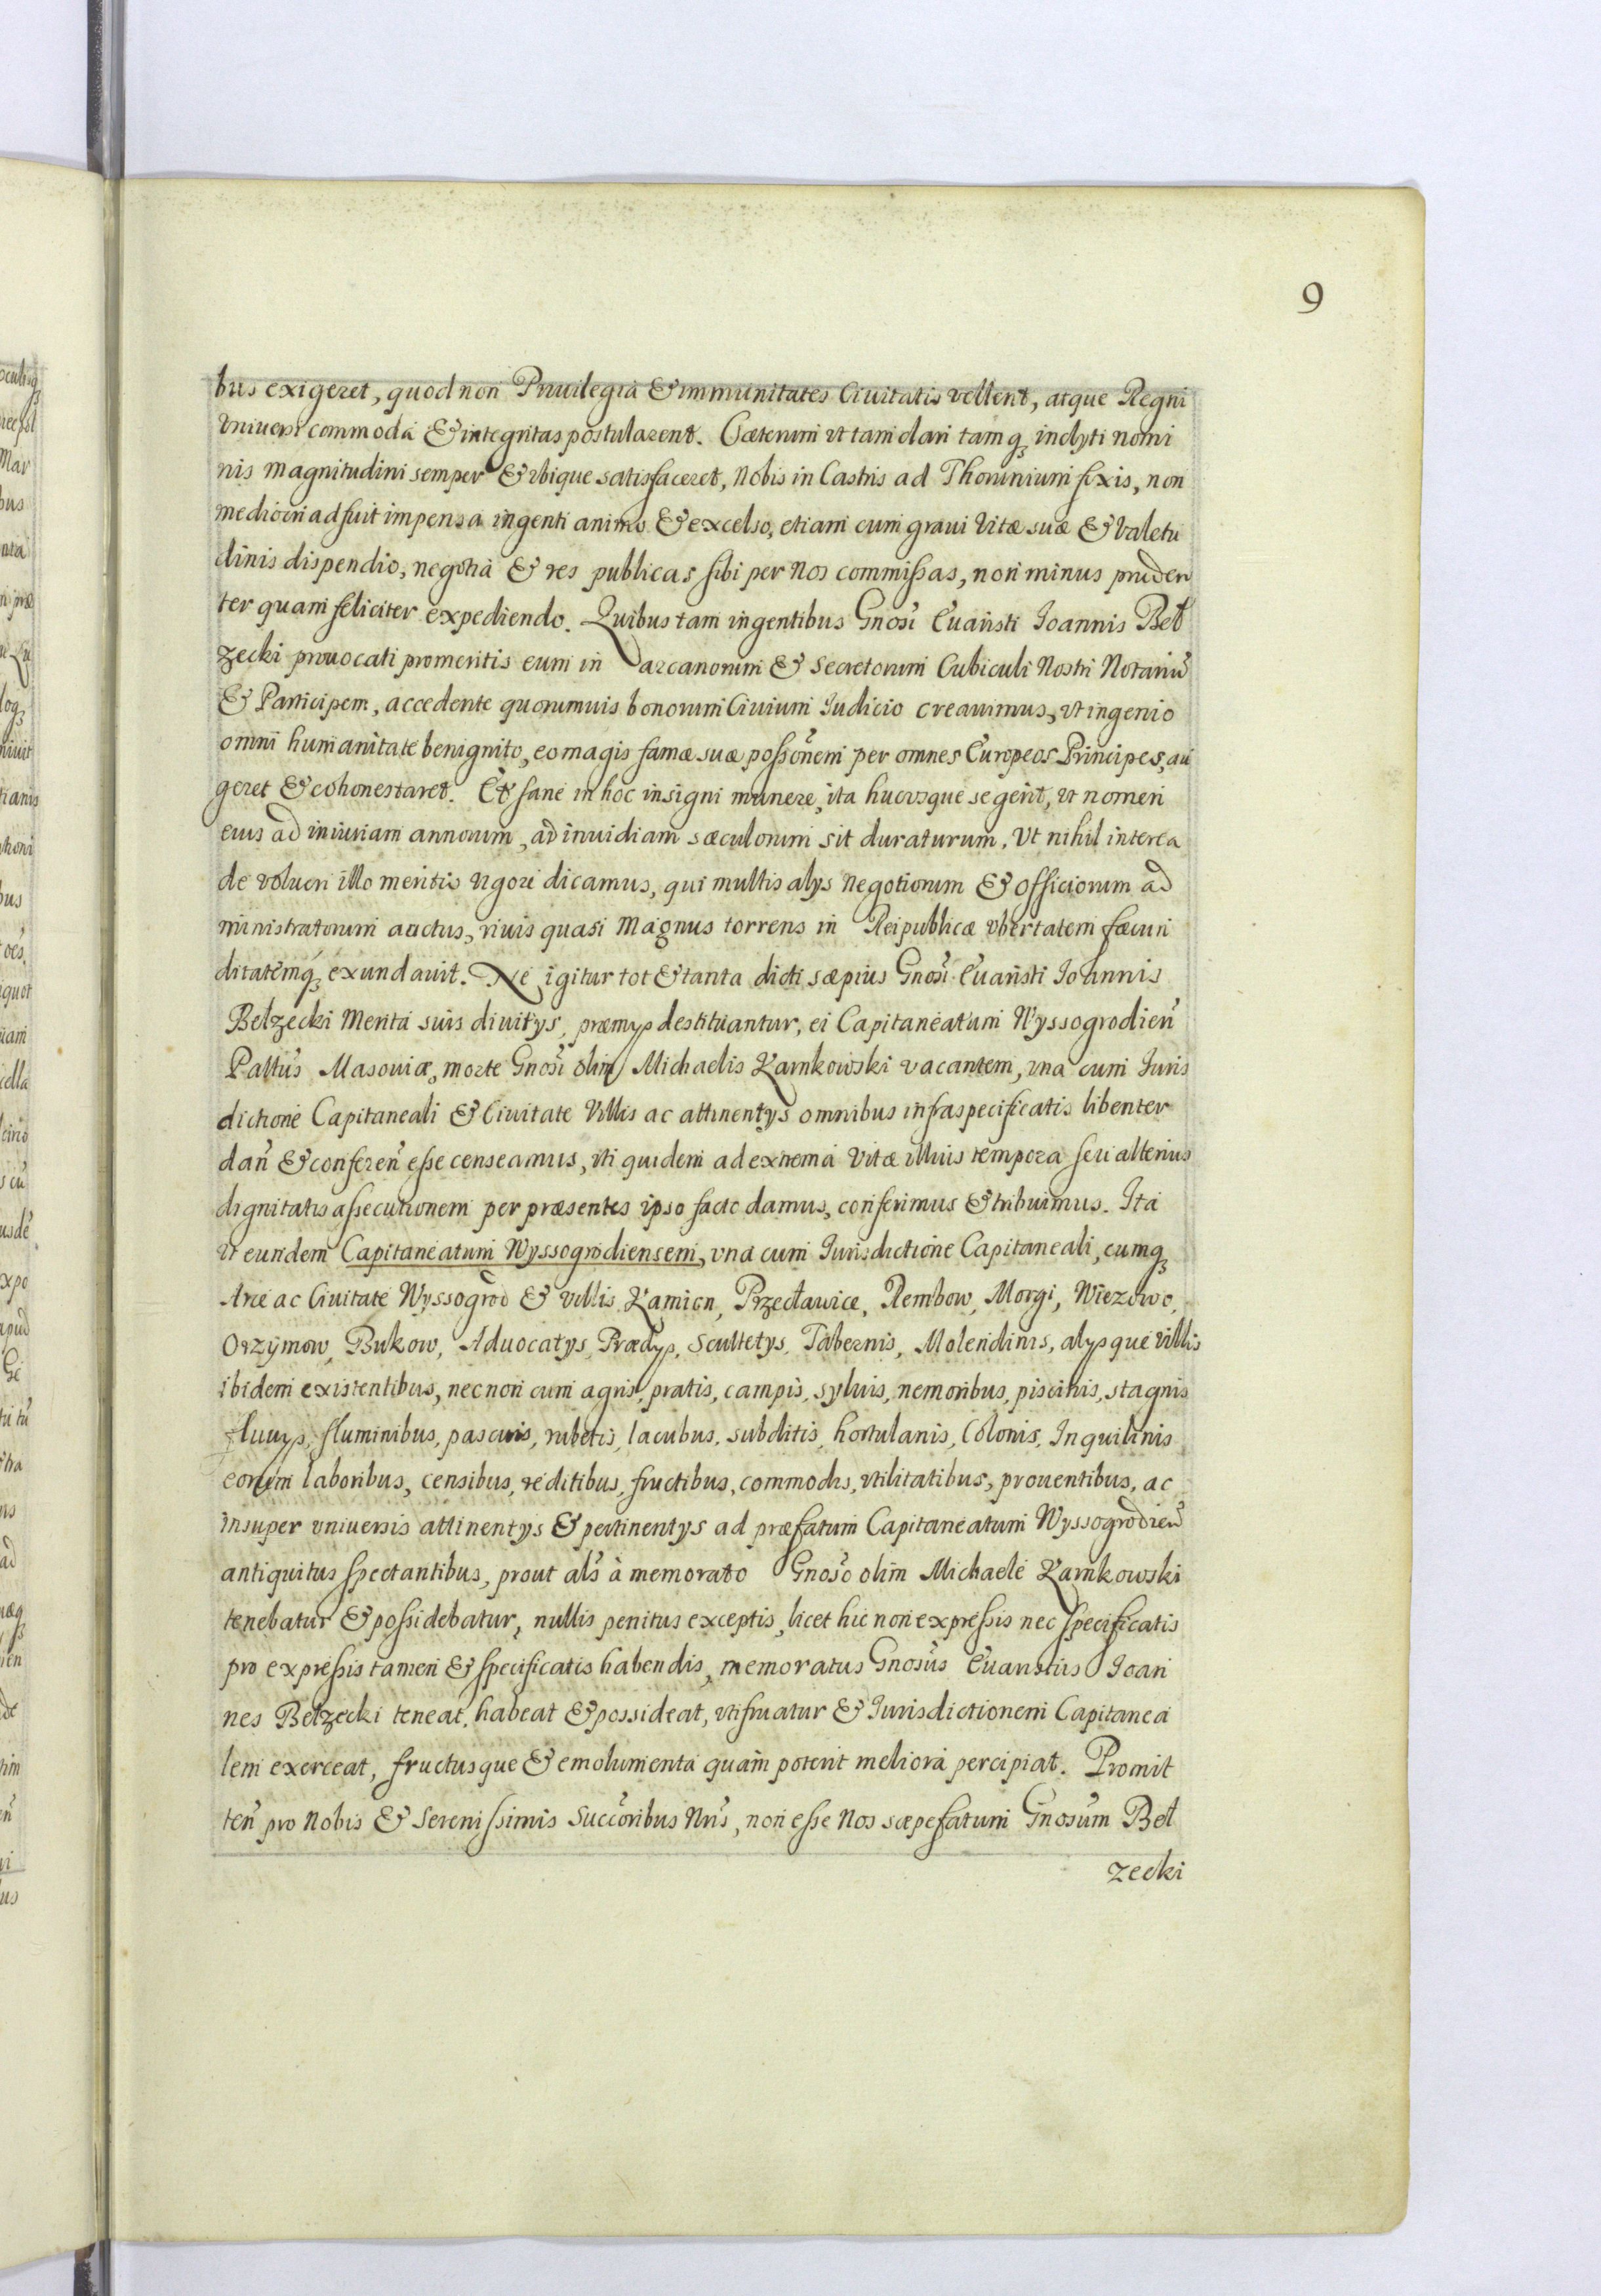 9
bus exigeret, quod non Priuilegia & immunitates Ciuitatis vellent, atque Regni
vniuersi commoda & integritas postularent. Cæterum vt tam clari tamq₃ inclyti nomi
nis magnitudini semper & vbique satisfaceret, Nobis in Castris ad Thorunium fixis, non
mediocri adfuit impensa ingenti animo & excelso, etiam cum graui vitæ suæ & valetu
dinis dispendio, negotia & res publicas sibi per Nos commissas, non minus pruden
ter quam feliciter expediendo. Quibus tam ingentibus Gnosi Euansti Ioannis Bel
zecki prouocati promeritis eum in arcanorum & Secretorum Cubiculi Nostri Notariũ
& Participem, accedente quorumuis bonorum Ciuium Iudicio creauimus, vt ingenio
omni humanitate benignito, eo magis famæ suæ possõnem per omnes Europeos Principes, au
geret & cohonestaret. Et sane in hoc insigni munere, ita hucvsque se gerit, vt nomen
eius ad iniuriam annorum, ad inuidiam sæculorum sit duraturum. Vt nihil interea
de volucri illo meritis vigore dicamus, qui multis alys Negotiorum & Officiorum ad
ministratorum auctus, riuis quasi Magnus torrens in Reipublicæ vbertatem fœcun
ditatemq₃ exundauit. Ne igitur tot & tanta dicti sæpius Gnosi Euansti Ioannis
Belzecki Merita suis diuitys, præmys destituantur, ei Capitaneatum Wyssogrodieñ
Paltus Masouiæ, morte Gnosi olim Michaelis Karnkowski vacantem, vna cum Iuris
dictione Capitaneali & Ciuitate Villis ac attinentys omnibus infraspecificatis libenter
dañ & confereñ esse censeamus, vti quidem ad extrema Vitæ illius tempora seu alterius
dignitatis assecutionem per præsentes ipso facto damus, conferimus & tribuimus. Ita
vt eundem Capitaneatum Wyssogrodiensem, vna cum Iurisdictione Capitaneali, cumq₃
Arce ac Ciuitate Wyssogrod & villis Kamien, Przecławice, Rembow, Morgi, Wiezowo,
Orzymow, Bukow, Aduocatys, Prædys, Scultetys, Tabernis, Molendinis, alysque villis
ibidem existentibus, necnon cum agris, pratis, campis, syluis, nemoribus, piscinis, stagnis
fluuys, fluminibus, pascuis, rubetis, lacubus, subditis, hortulanis, Colonis, Inquilinis
eorum laboribus, censibus, reditibus, fructibus, commodis, vtilitatibus, prouentibus, ac
insuper vniuersis attinentys & pertinentys ad præfatum Capitaneatum Wyssogrodieñ
antiquitus spectantibus, prout als à memorato Gnoso olim Michaele Karnkowski
tenebatur & possidebatur, nullis penitus exceptis, licet hic non expressis nec specificatis
pro expressis tamen & specificatis habendis, memoratus Gnosus Euanstus Ioan
nes Belzecki teneat, habeat & possideat, vtifruatur & Iurisdictionem Capitanea
lem exerceat, fructusque & emolumenta quam poterit meliora percipiat. Promit
teñ pro Nobis & Serenissimis Succoribus Nris, non esse Nos sæpefatum Gnosum Bel
zecki